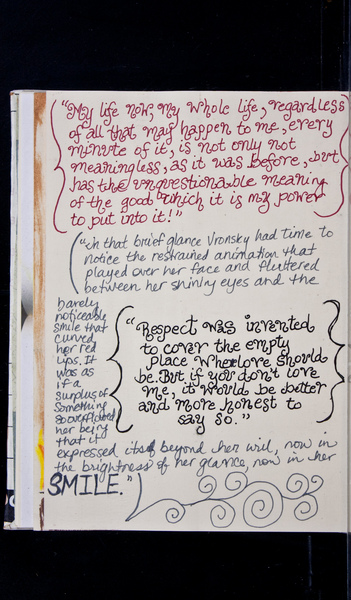 "My life now, my whole life, regardless
of all that may happen to me, every
minute of it, is not only not
meaningless, as it was before, but
has the unquestionable meaning
of the good which it is my power
to put into it!"
"in that brief glance Vronsky had time to
notice the restrained animation that
played over her face and fluttered
between her shining eyes and the
barely
noticeable
smile that
curved
her red
lips. It
was as
if a
surplus of
something
so overflowed
her being
that it
expressed itself beyond her will, now in
the brightness of her glance, now in her
SMILE."
"Respect was invented
to cover the empty
place where love should
be. But if you don't love
me, it would be better
and more honest to
say so."